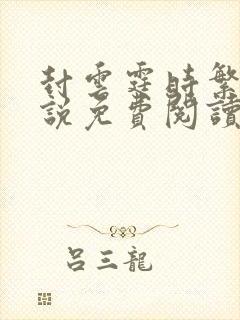 封雲霆時繁
說免費閱讀
呂三龍